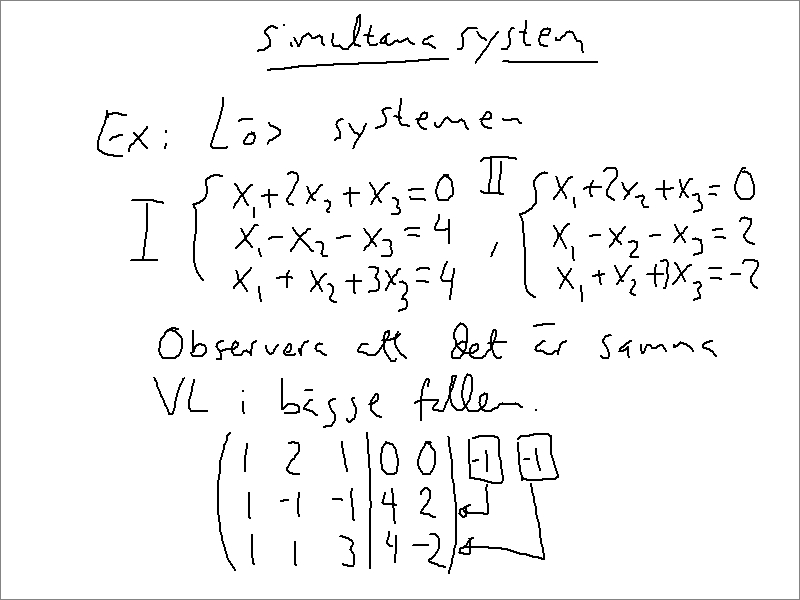 simultana system
Ex: Lös systemen
I { x₁+2x₂+x₃=0 II { x₁+2x₂+x₃=0
x₁-x₂-x₃=4 , x₁-x₂-x₃=2
x₁+x₂+3x₃=4 x₁+x₂+3x₃=-2
Observera att det är samma
VL i bägge fallen.
( 1 2 1 | 0 0 | -1 -1
1 -1 -1 | 4 2 |
1 1 3 | 4 -2 |